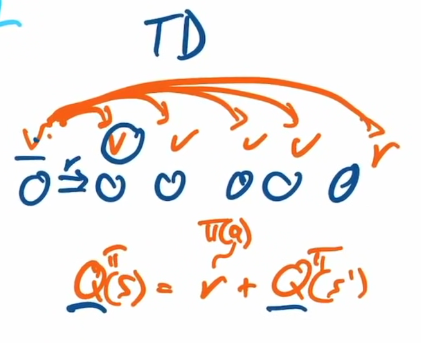 TD
V V V V V r
r
π(a)
Q^π(s) = r + Q^π(s')